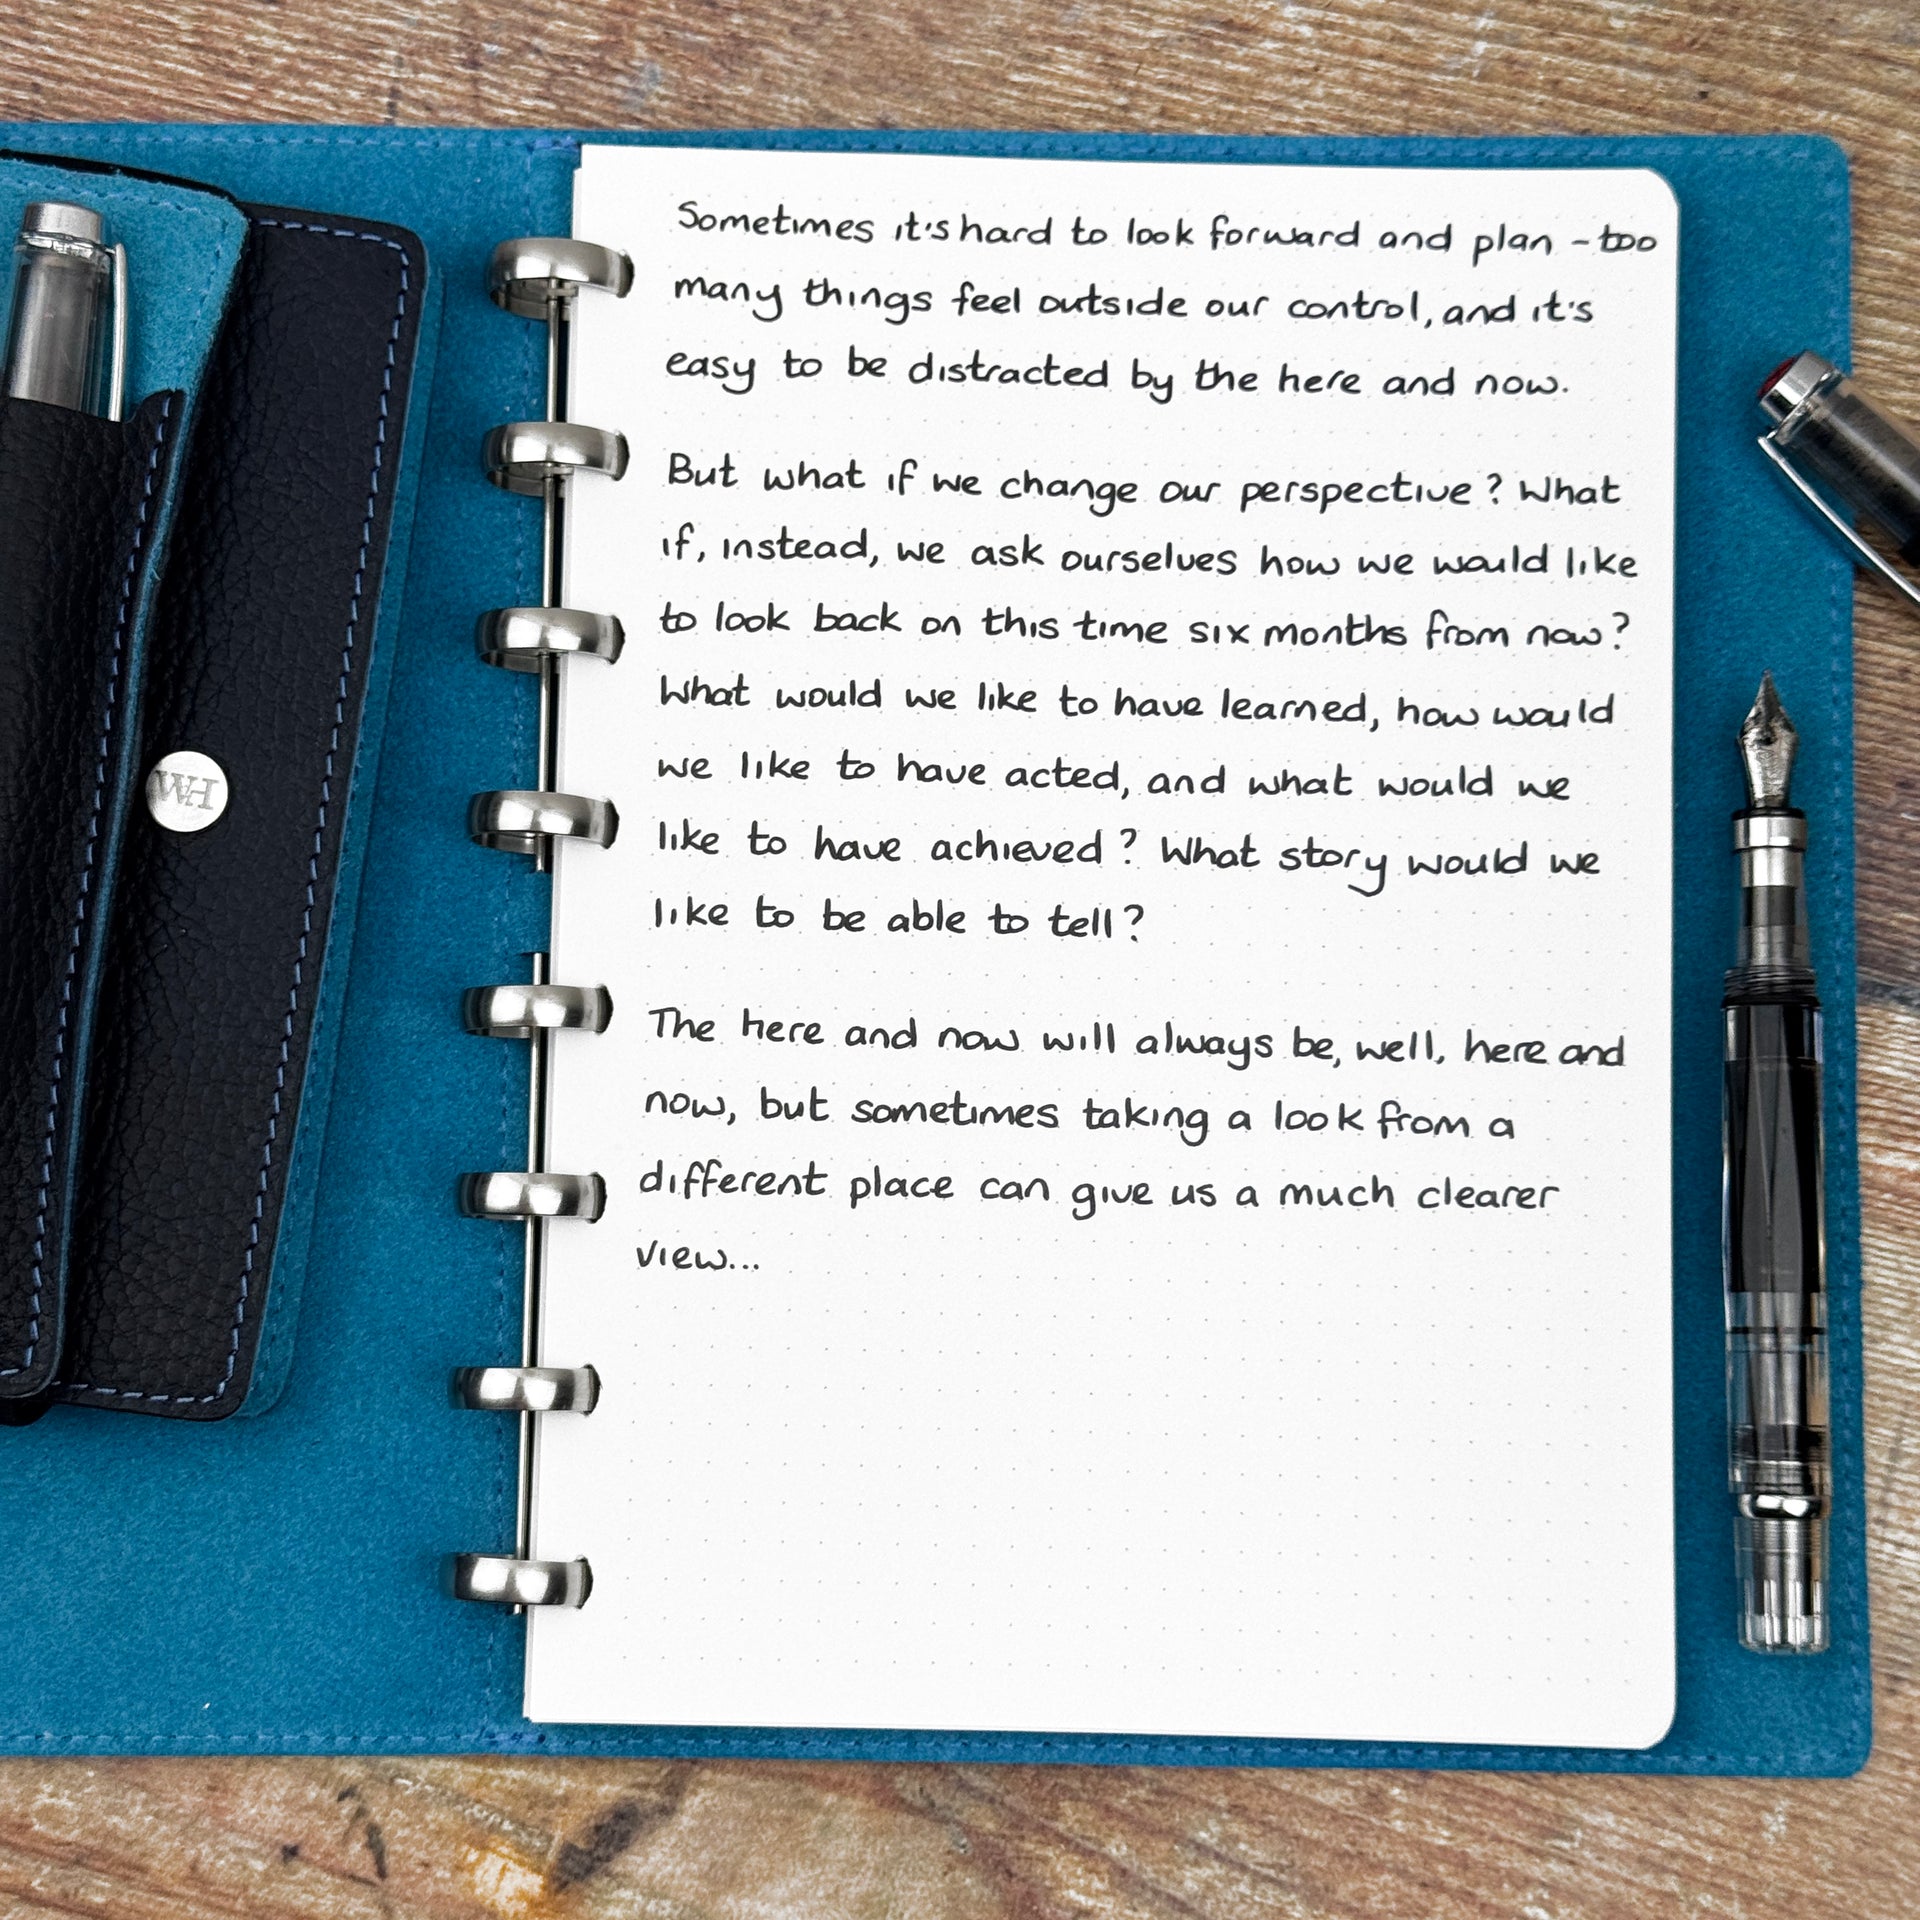 Sometimes it's hard to look forward and plan - too
many things feel outside our control, and it's
easy to be distracted by the here and now.
But what if we change our perspective? What
if, instead, we ask ourselves how we would like
to look back on this time six months from now?
What would we like to have learned, how would
we like to have acted, and what would we
like to have achieved? What story would we
like to be able to tell?
The here and now will always be, well, here and
now, but sometimes taking a look from a
different place can give us a much clearer
view...
WH